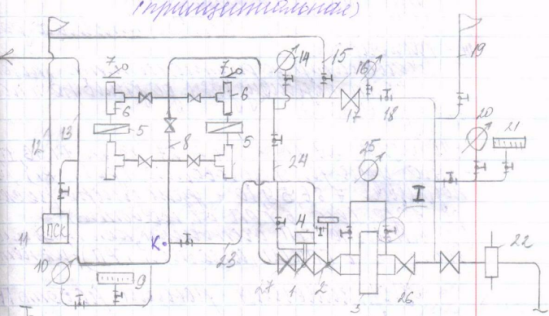 (принципиальная)
14
15
16
17
18
19
20
21
7
7
6
6
5
5
8
12
13
11
ПСК
10
9
К
23
24
4
25
I
27
1
2
3
26
22